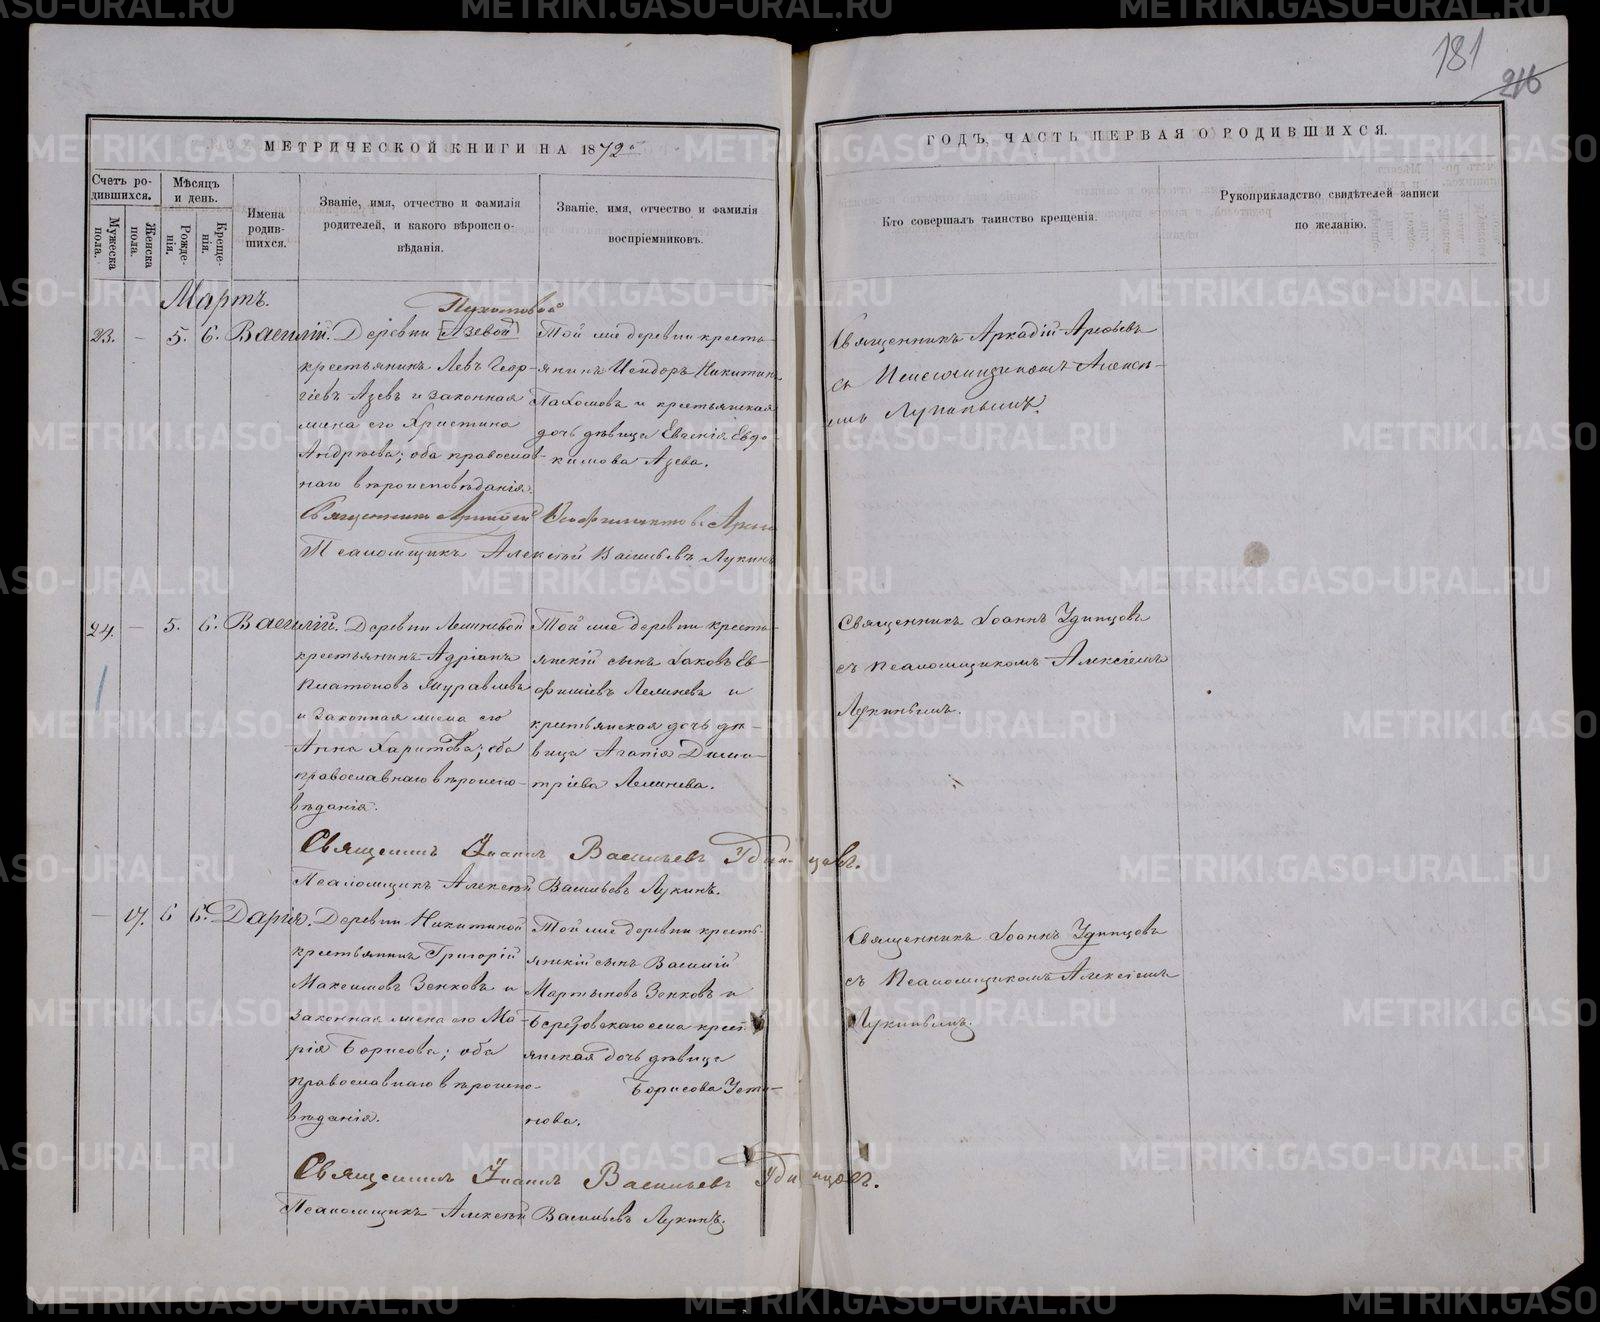 181
216
МЕТРИЧЕСКОЙ КНИГИ НА 1872
ГОДЪ, ЧАСТЬ ПЕРВАЯ О РОДИВШИХСЯ.
Счетъ ро-
дившихся.
Мужеска пола.
Женска пола.
Мѣсяцъ
и день.
Рожде-
нія.
Креще-
нія.
Имена
родив-
шихся.
Званіе, имя, отчество и фамилія
родителей, и какого вѣроиспо-
вѣданія.
Званіе, имя, отчество и фамилія
воспріемниковъ.
Кто совершалъ таинство крещенія.
Рукоприкладство свидѣтелей записи
по желанію.
Мартъ.
23. – 5. 6. Василій.
Деревни [Азевой]
крестьянинъ Левъ Геор-
гіевъ Азевъ и законная
жена его Христина
Андрѣева; оба православ-
наго вѣроисповѣданія.
Той же деревни кресть-
янинъ Исидоръ Никитинъ
Пахомовъ и крестьянская
дочь дѣвица Евгенія Евдо-
кимова Азева.
Священникъ Аркадій
съ Псаломщикомъ Алексі-
емъ Лукинымъ.
Псаломщикъ Алексѣй Васильевъ Лукинъ
24. – 5. 6. Василій.
Деревни
крестьянинъ Адріанъ
Платоновъ Журавлевъ
и законная жена его
Анна Харитова; оба
православнаго вѣроиспо-
вѣданія.
Той же деревни кресть-
янскій сынъ Іаковъ Ев-
фиміевъ и
крестьянская дочь дѣ-
вица Агапія Дими-
тріева
Священникъ Іоаннъ Удинцовъ
съ Псаломщикомъ Алексіемъ
Лукинымъ.
Священникъ Іоаннъ Васильевъ Удинцовъ.
Псаломщикъ Алексѣй Васильевъ Лукинъ.
– 17. 6 6. Дарія.
Деревни Никитиной
крестьянинъ Григорій
Максимовъ Зенковъ и
законная жена его Ма-
рія Борисова; оба
православнаго вѣроиспо-
вѣданія.
Той же деревни кресть-
янскій сынъ Василій
Мартыновъ Зенковъ и
Березовскаго села крест-
янская дочь дѣвица
Борисова Усти-
нова.
Священникъ Іоаннъ Удинцовъ
съ Псаломщикомъ Алексіемъ
Лукинымъ.
Священникъ Іоаннъ Васильевъ Удинцовъ.
Псаломщикъ Алексѣй Васильевъ Лукинъ.
METRIKI.GASO-URAL.RU